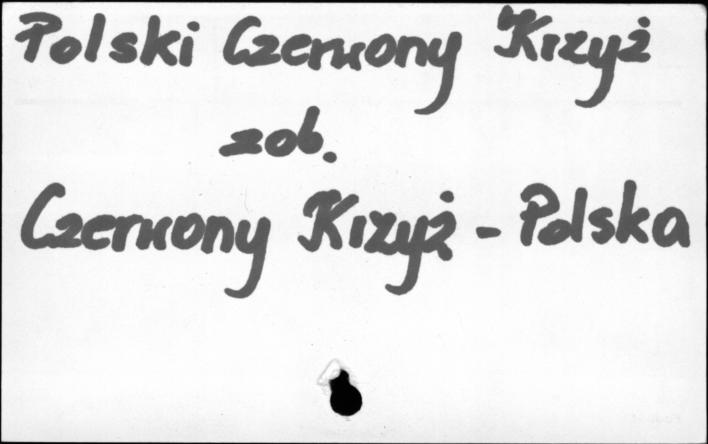 Polski Czerwony Krzyż
zob.
Czerwony Krzyż - Polska